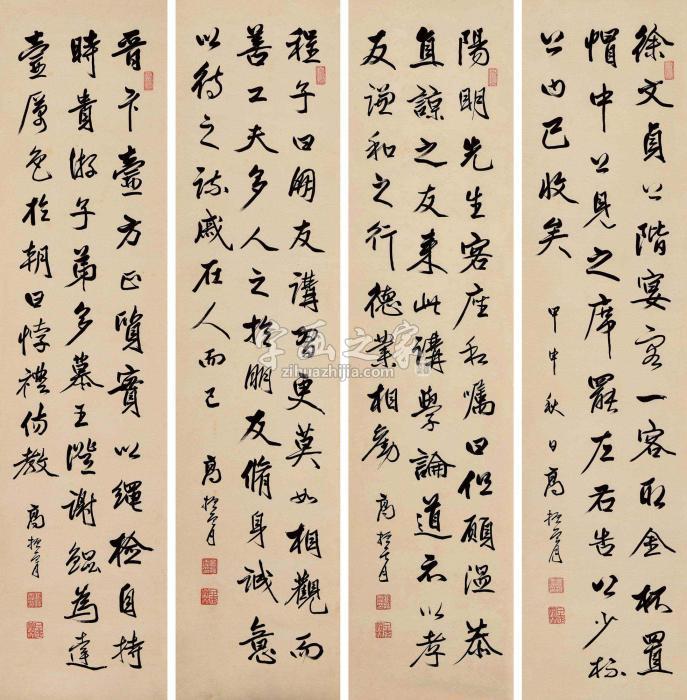 徐文貞公階宴客一客取金杯置
帽中公見之席罷左右告公少杯
公曰已收矣
甲申秋日高振霄
陽明先生客座私囑曰但願溫恭
直諒之友來此講學論道示以孝
友謙和之行德業相勸
高振霄
程子曰朋友講習更莫如相觀而
善工夫多人之於朋友脩身誠意
以待之疏戚在人而已
高振霄
晉卞壼方正質實以繩檢自持
時貴游子弟多慕王澄謝鯤為達
壼厲色於朝曰悖禮傷教
高振霄
字画之家
zihuazhijia.com